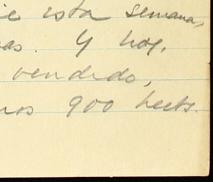 esta semana,
. Y hoy,
vendido,
nos 900 hects.